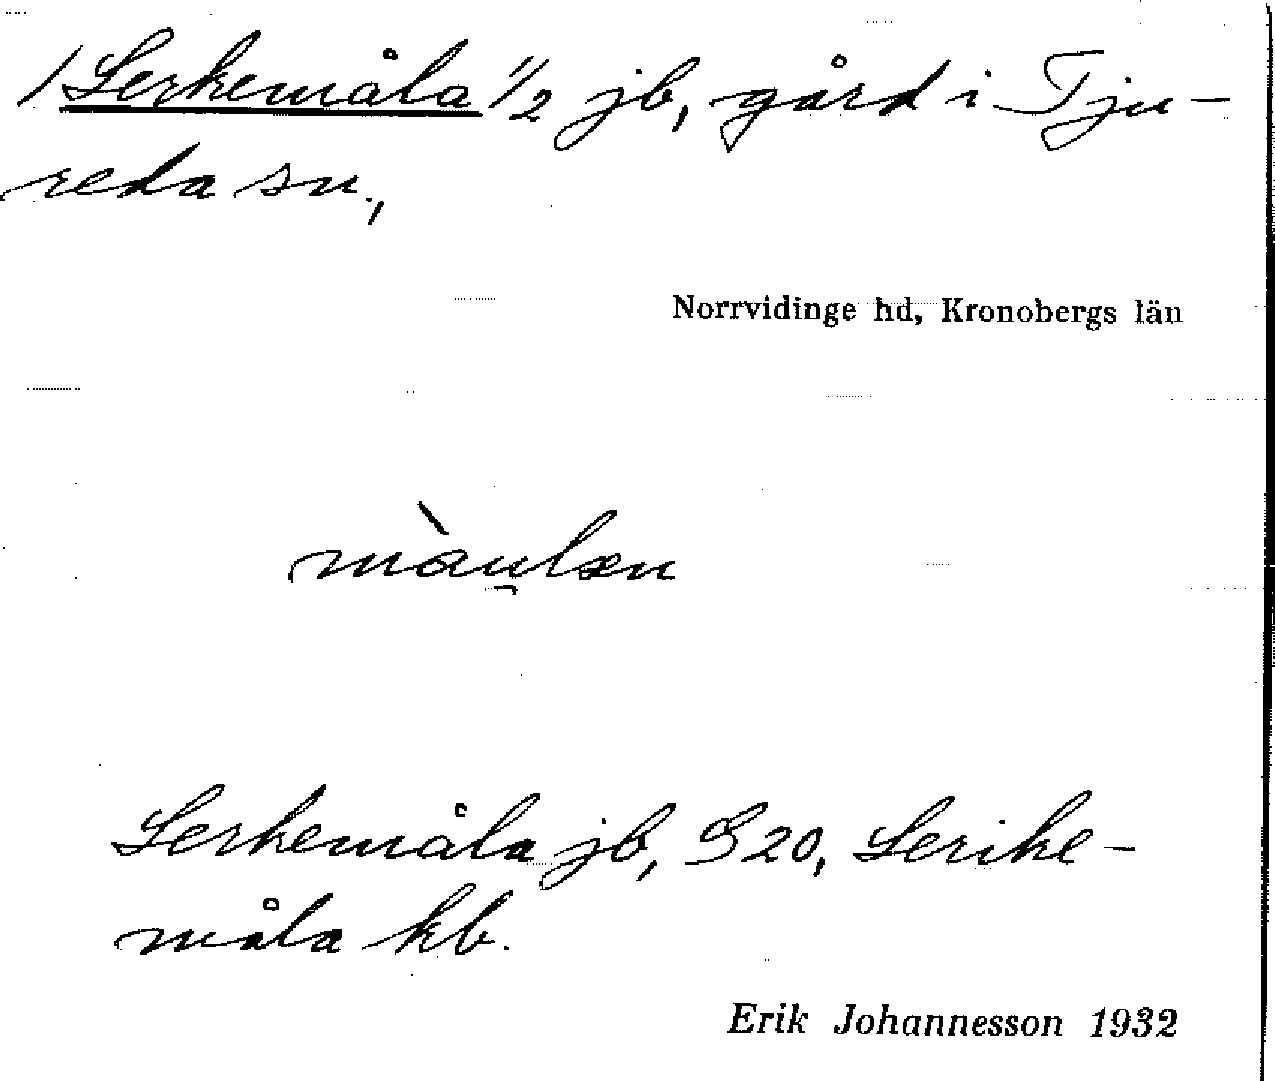 / Lerkemåla 1/2 jb, gård i Tju-
reda sn.,
Norrvidinge hd, Kronobergs län
màu̯lsn
Lerkemåla jb, S20, Lerike-
måla kb.
Erik Johannesson 1932